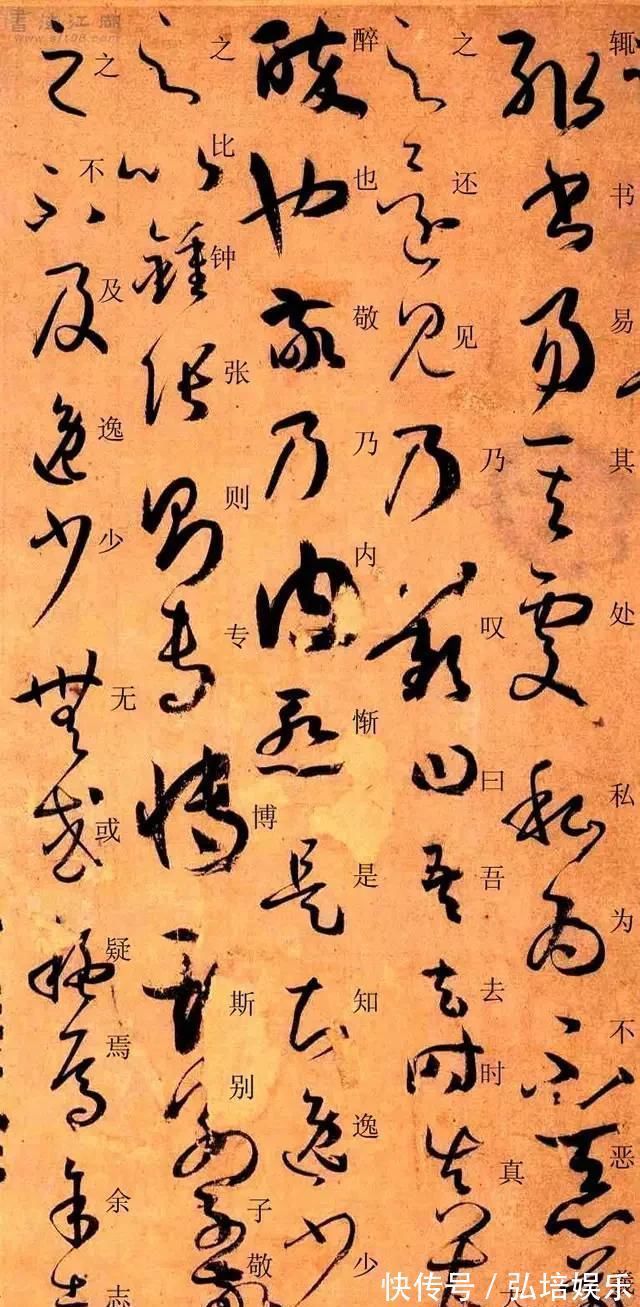 辄书易其处私为不恶
之还见乃叹曰吾去时真
醉也敬乃内惭是知逸少
之比钟张则专博斯别子敬
之不及逸少无或疑焉余志
快传号／弘培娱乐